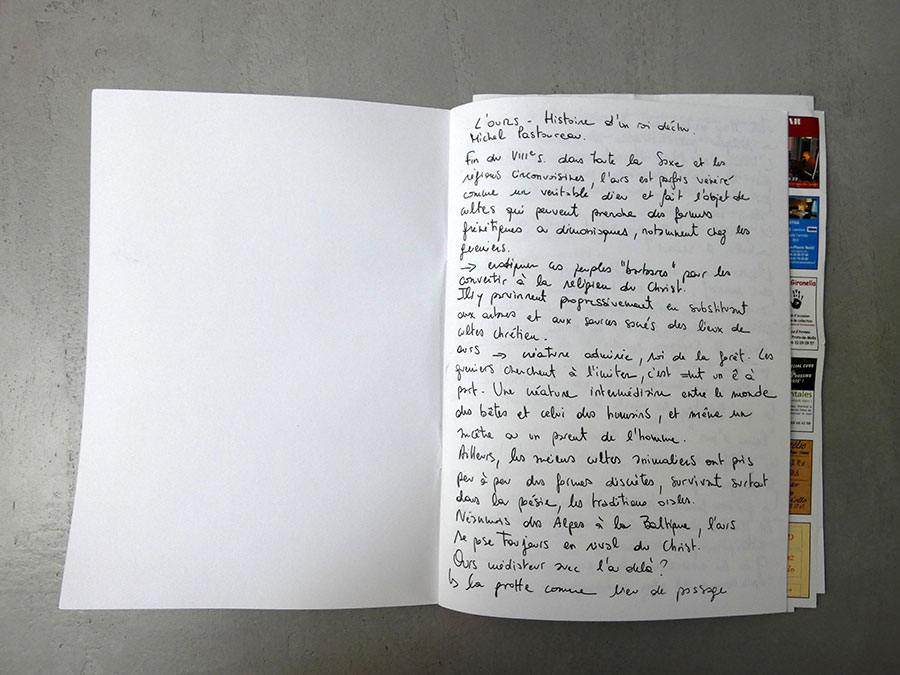 L'OURS - Histoire d'un roi déchu.
Michel Pastoureau.
Fin du VIIIe s. dans toute la Saxe et les
régions circonvoisines, l'ours est parfois vénéré
comme un véritable dieu et fait l'objet de
cultes qui peuvent prendre des formes
frénétiques ou démoniaques, notamment chez les
guerriers.
→ éradiquer ces peuples "barbares" pour les
convertir à la religion du Christ.
Ils y parvinrent progressivement en substituant
aux arbres et aux sources sacrés des lieux de
cultes chrétien.
ours → créature admirée, roi de la forêt. Les
guerriers cherchent à l'imiter, c'est un ê à
part. Une créature intermédiaire entre le monde
des bêtes et celui des humains, et même un
ancêtre ou un parent de l'homme.
Ailleurs, les anciens cultes animaliers ont pris
peu à peu des formes discrètes, survivant surtout
dans la poésie, les traditions orales.
Néanmoins des Alpes à la Baltique, l'ours
se pose toujours en rival du Christ.
Ours médiateur avec l'au delà ?
↳ la grotte comme lieu de passage
AR
Gironella